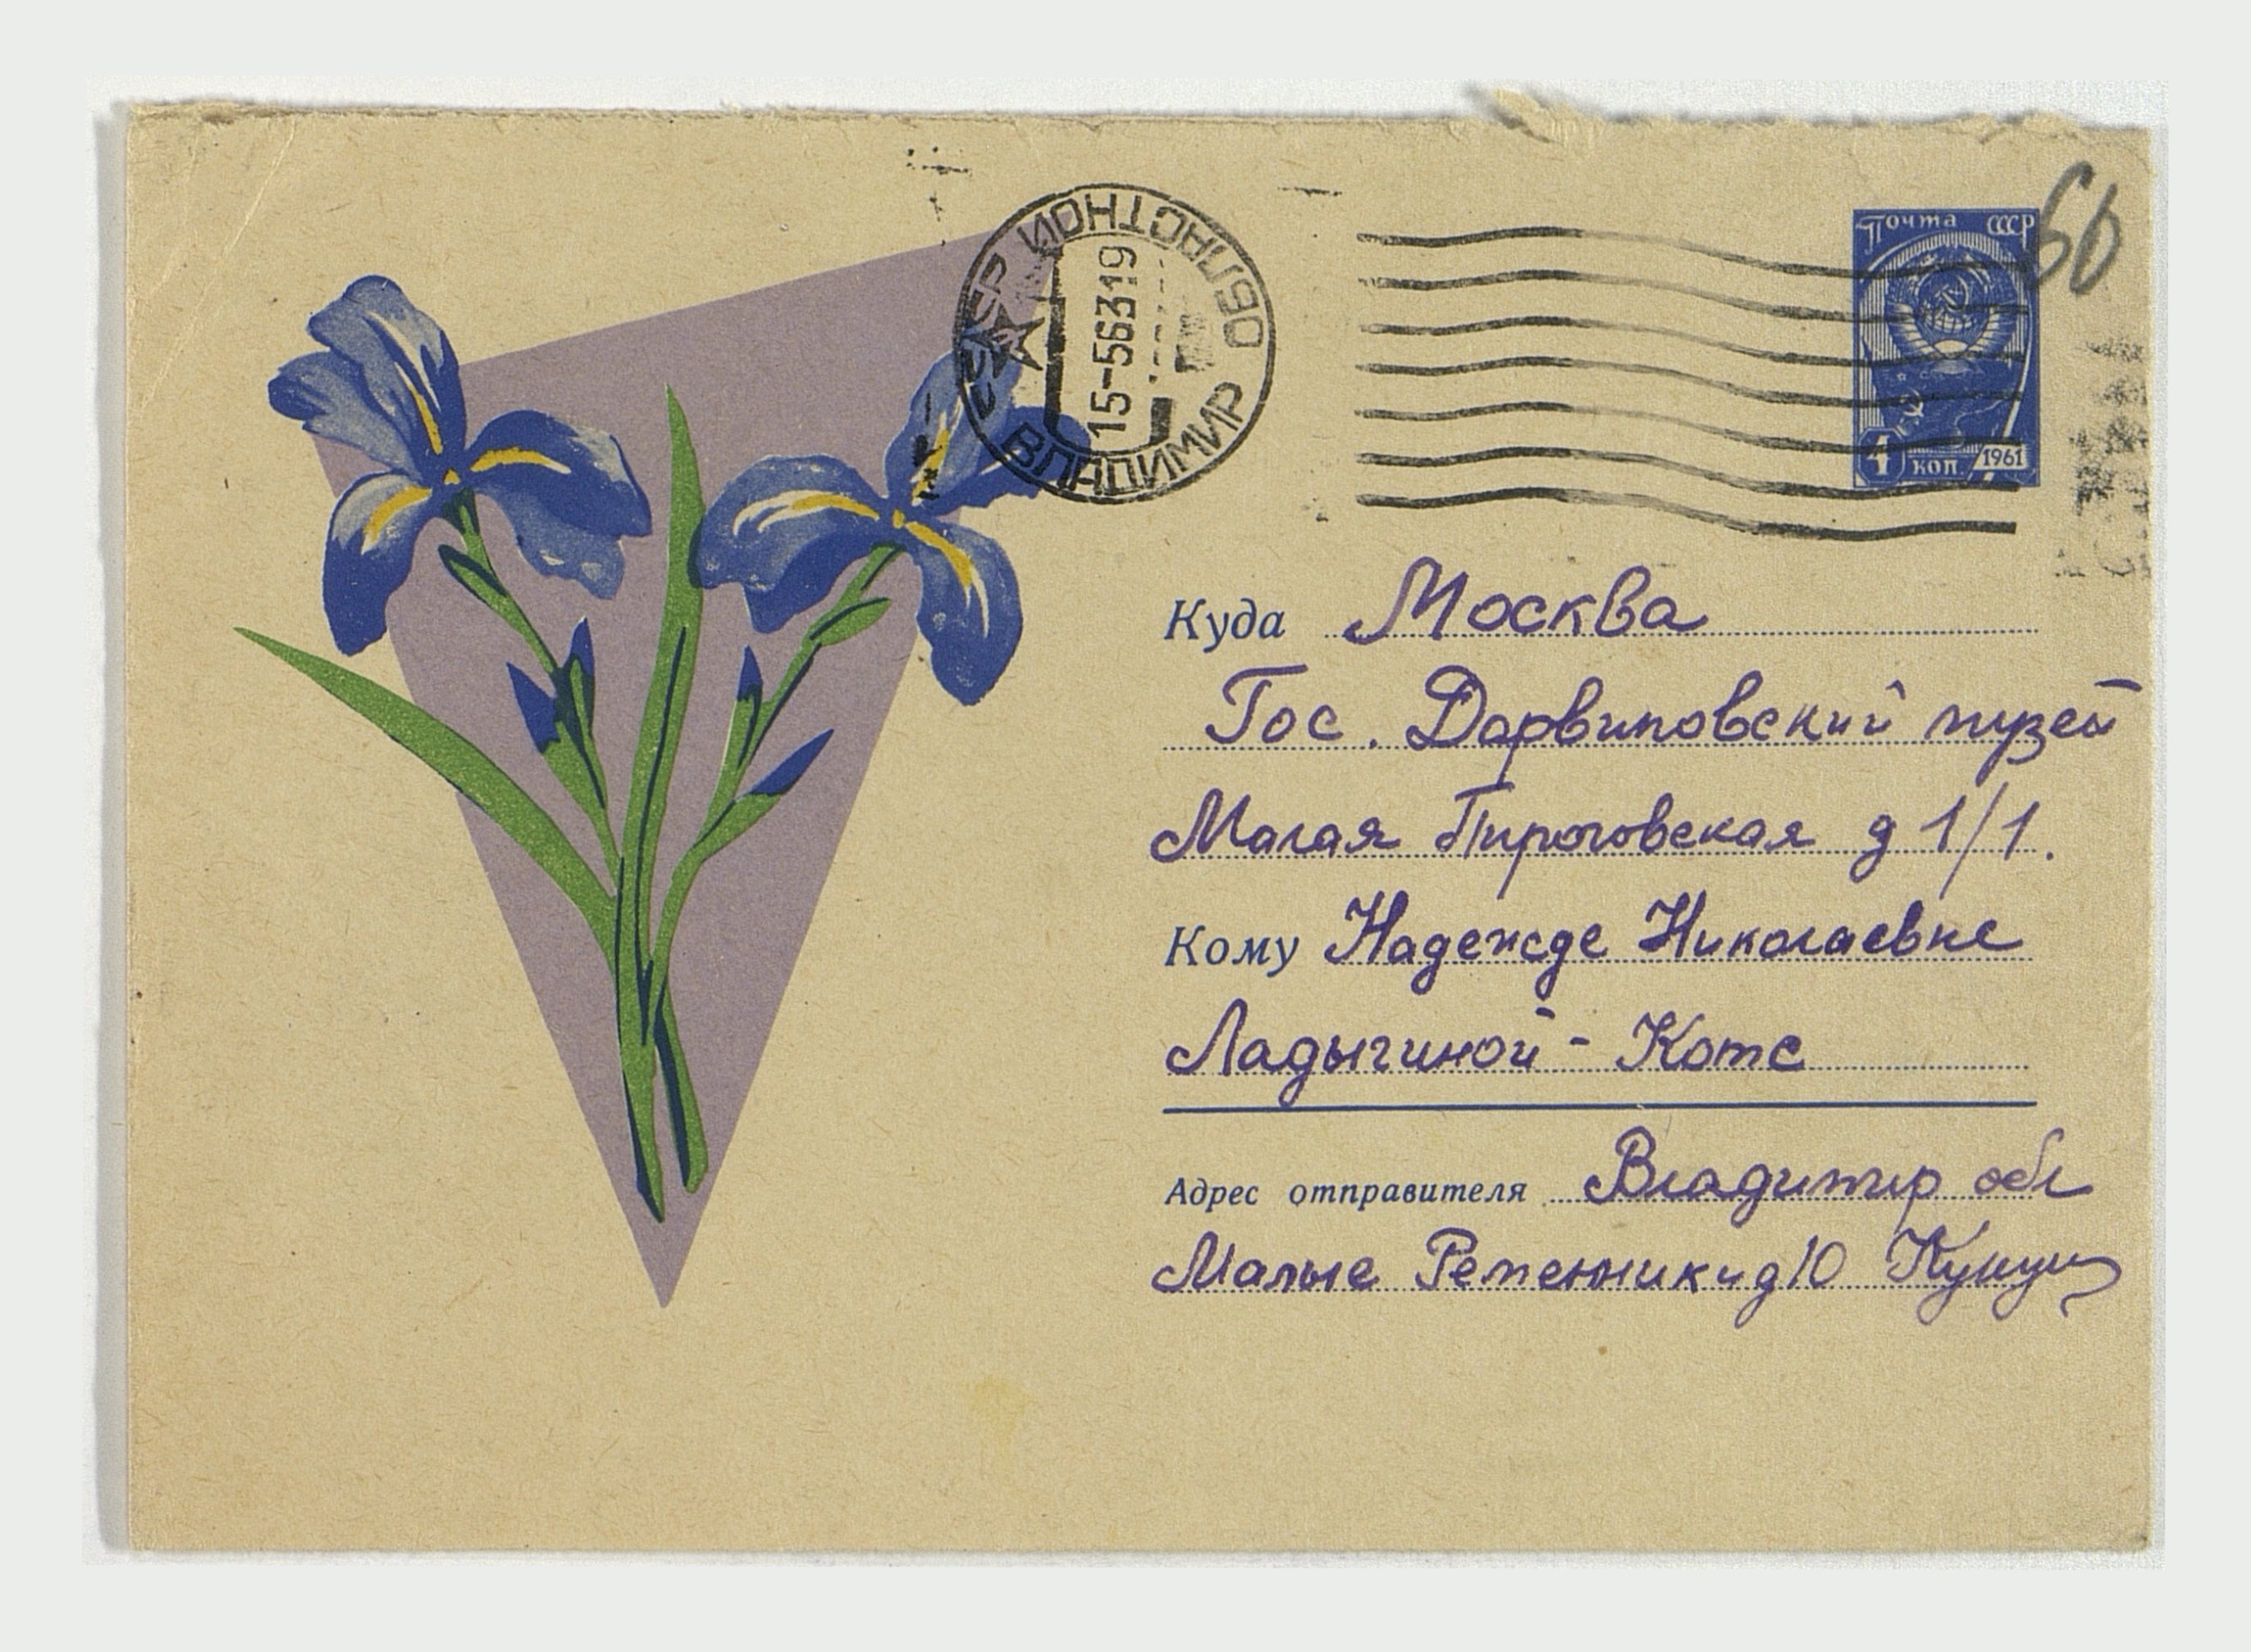 Почта СССР
4 коп. 1961
СССР ВЛАДИМИР ОБЛАСТНОЙ
15-56319
Куда Москва
Гос. Дарвиновский музей
Малая Пироговская д 1/1.
Кому Надежде Николаевне
Ладыгиной - Котс
Адрес отправителя Владимир обл
Малые Ременники д 10